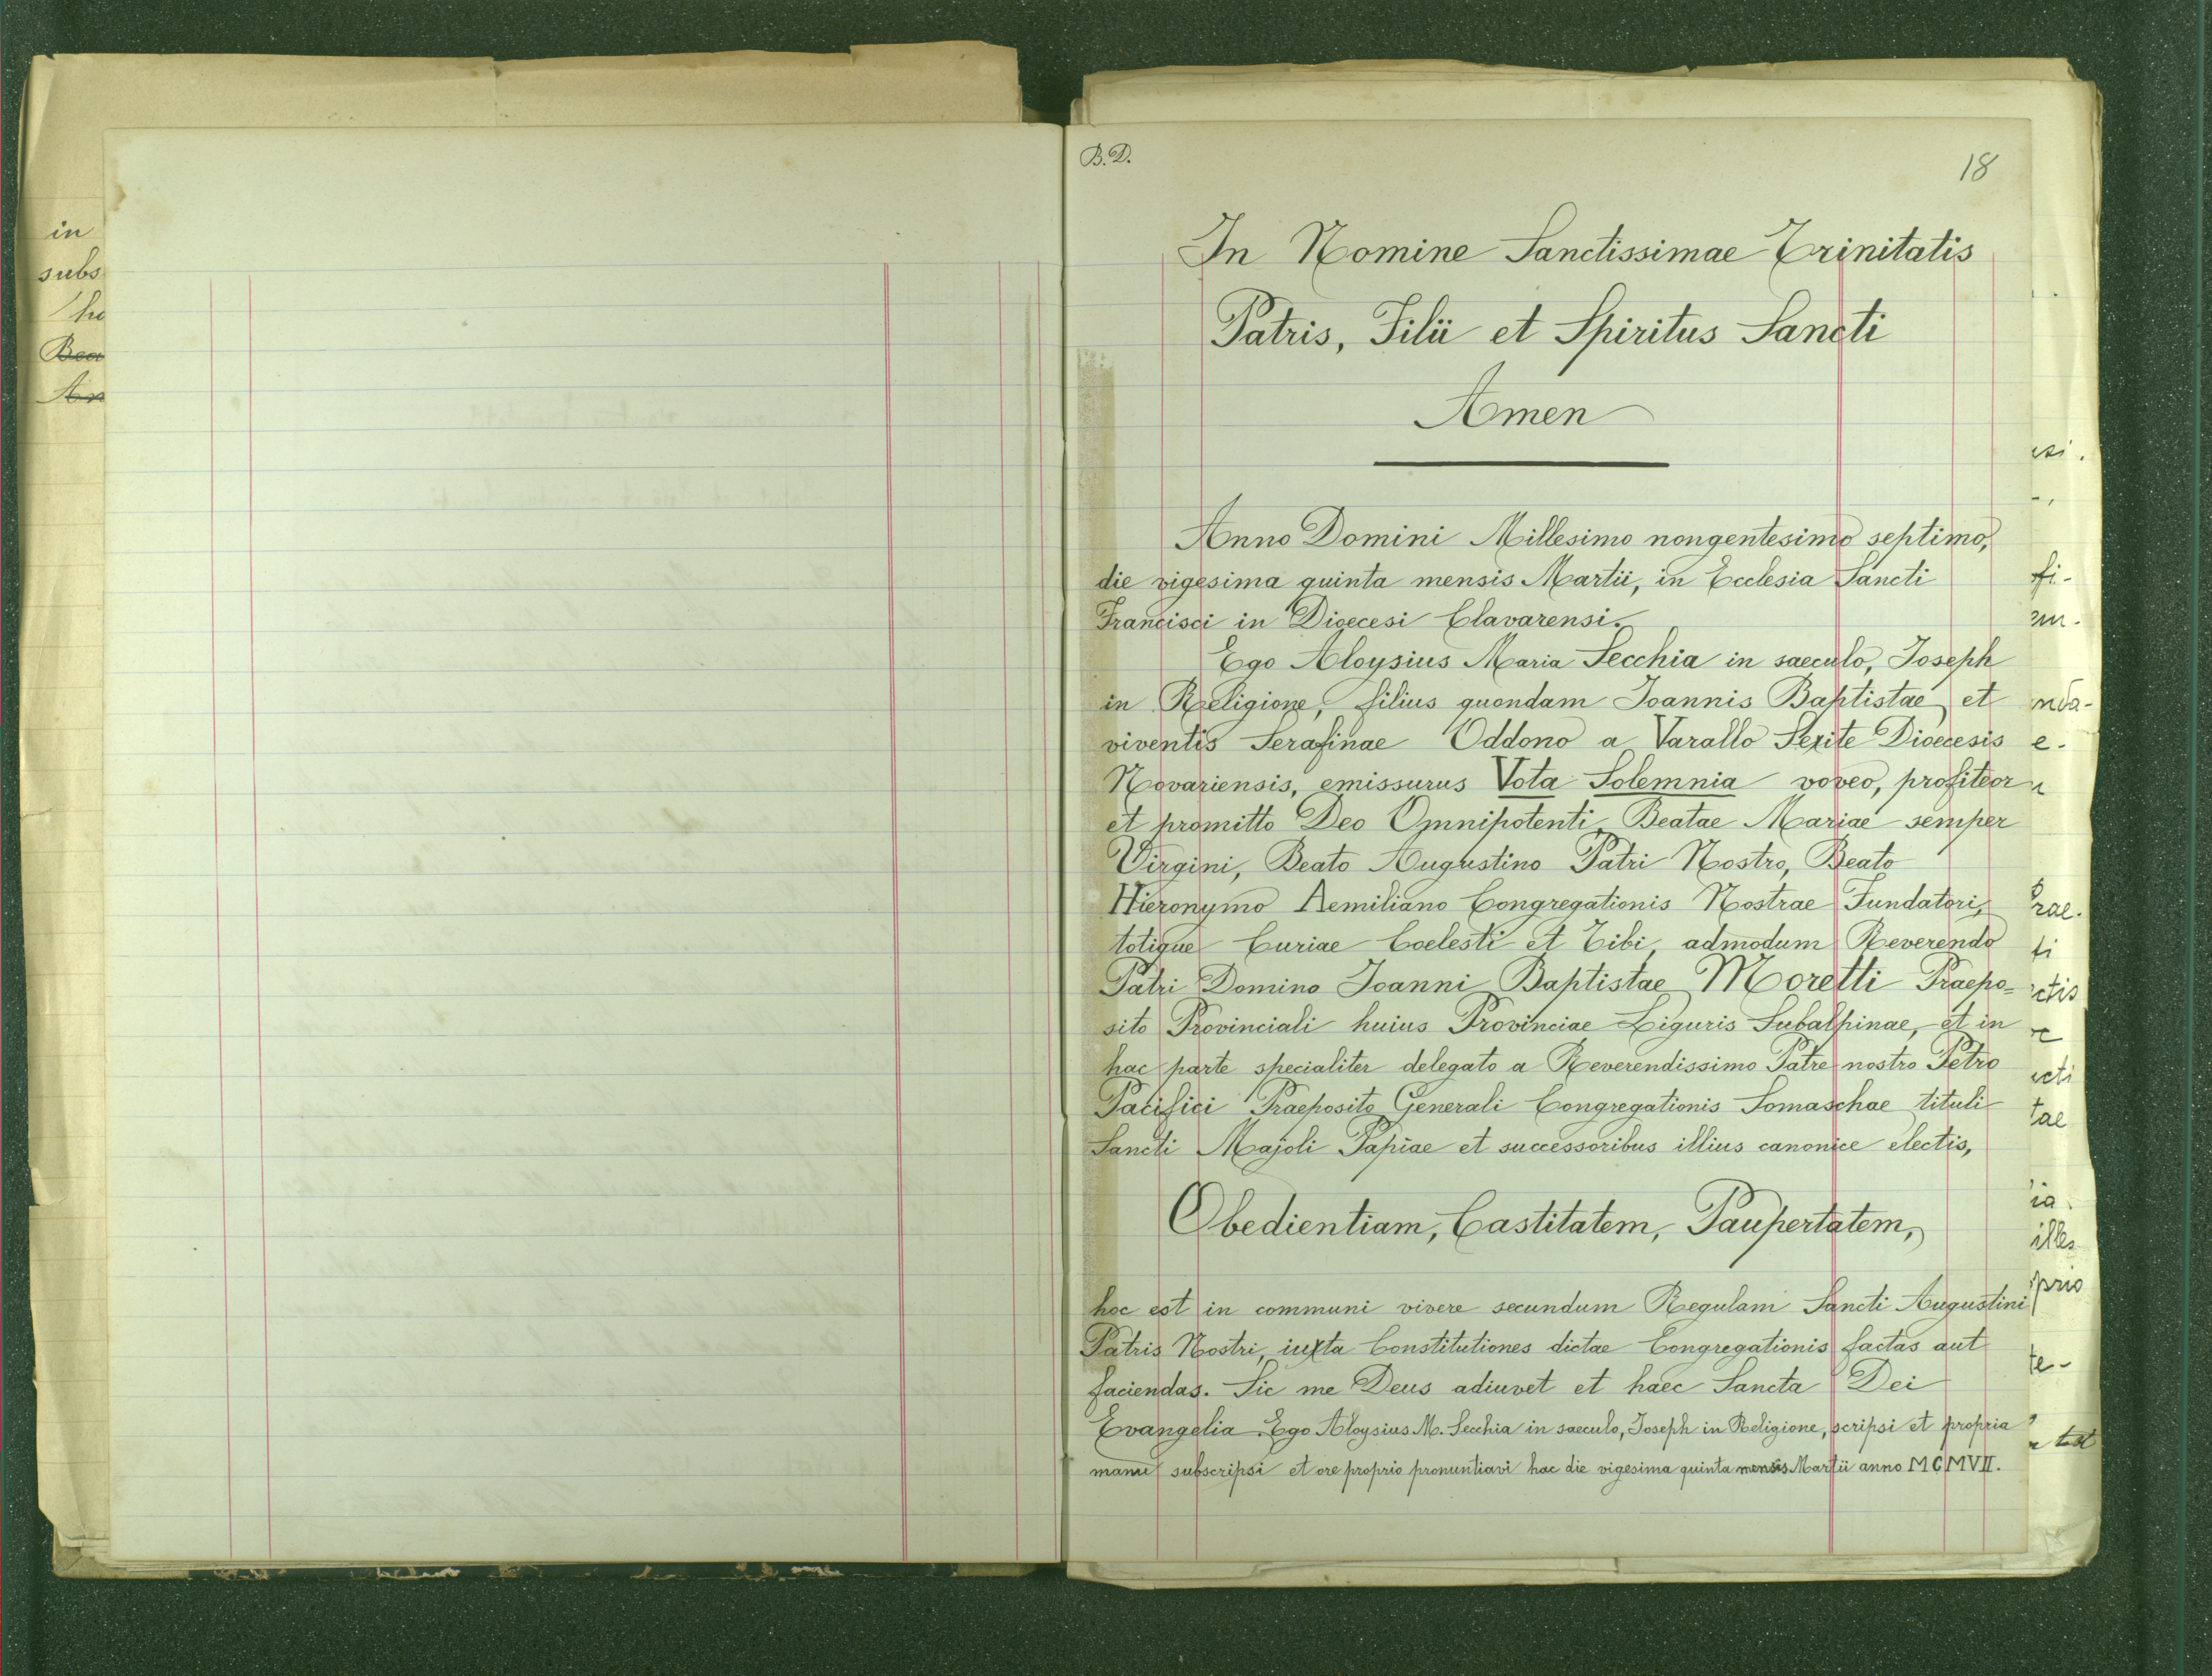 in
subs
B. D.
18
In Nomine Sanctissimae Trinitatis
Patris, Filii et Spiritus Sancti
Amen
Anno Domini Millesimo nongentesimo septimo,
die vigesima quinta mensis Martii, in Ecclesia Sancti
Francisci in Dioecesi Clavarensi.
Ego Aloysius Maria Secchia in saeculo, Joseph
in Religione, filius quondam Joannis Baptistae et
viventis Serafinae Oddono a Varallo Sexite Dioecesis
Novariensis, emissurus Vota Solemnia voveo, profiteor
et promitto Deo Omnipotenti, Beatae Mariae semper
Virgini, Beato Augustino Patri Nostro, Beato
Hieronymo Aemiliano Congregationis Nostrae Fundatori,
totique Curiae Coelesti et Tibi, admodum Reverendo
Patri Domino Joanni Baptistae Moretti Praepo=
sito Provinciali huius Provinciae Liguris Subalpinae, et in
hac parte specialiter delegato a Reverendissimo Patre nostro Petro
Pacifici Praeposito Generali Congregationis Somaschae tituli
Sancti Majoli Papiae et successoribus illius canonice electis,
Obedientiam, Castitatem, Paupertatem,
hoc est in communi vivere secundum Regulam Sancti Augustini
Patris Nostri, iuxta Constitutiones dictae Congregationis factas aut
faciendas. Sic me Deus adiuvet et haec Sancta Dei
Evangelia. Ego Aloysius M. Secchia in saeculo, Joseph in Religione, scripsi et propria
manu subscripsi et ore proprio pronuntiavi hac die vigesima quinta mensis Martii anno MCMVII.